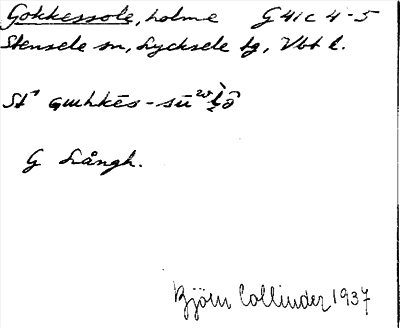 Gokkessole, holme G 41 c 4-5
Stensele sn, Lycksele lg, Vbt l.
G Långh.
Björn Collinder 1937